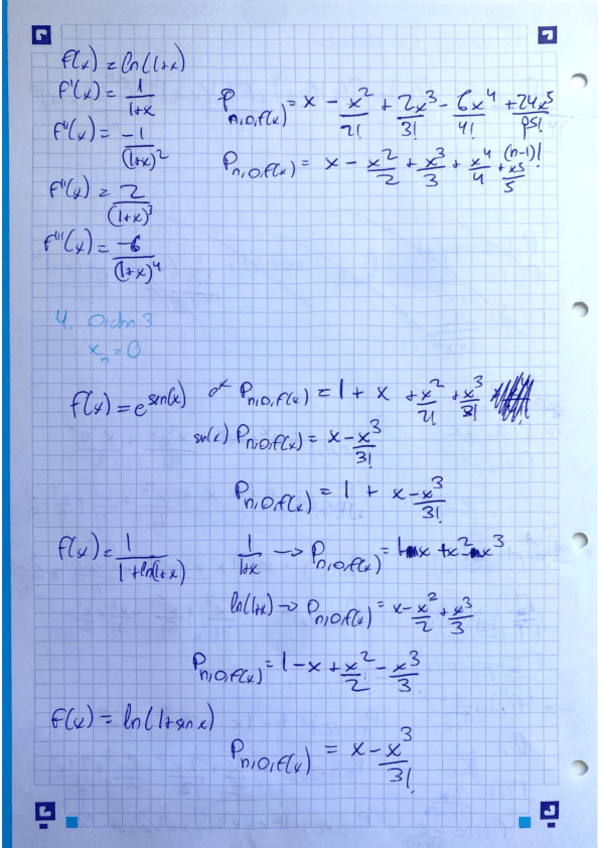 f(x) = ln(1+x)
f'(x) = 1/(1+x)
P_{n,0,f(x)} = x - x²/2! + 2x³/3! - 6x⁴/4! + 24x⁵/5!
f''(x) = -1/(1+x)²
P_{n,0,f(x)} = x - x²/2 + x³/3 + x⁴/4 + x⁵/5 (n-1)!
f''(x) = 2/(1+x)³
f'''(x) = -6/(1+x)⁴
4. Orden 3
x₀ = 0
f(x) = e^{sen(x)} eˣ P_{n,0,f(x)} = 1 + x + x²/2! + x³/3!
sen(x) P_{n,0,f(x)} = x - x³/3!
P_{n,0,f(x)} = 1 + x - x³/3!
f(x) = 1/(1+ln(1+x)) 1/(1+x) → P_{n,0,f(x)} = 1-x+x²-x³
ln(1+x) → P_{n,0,f(x)} = x - x²/2 + x³/3
P_{n,0,f(x)} = 1 - x + x²/2 - x³/3
f(x) = ln(1+sen x)
P_{n,0,f(x)} = x - x³/3!